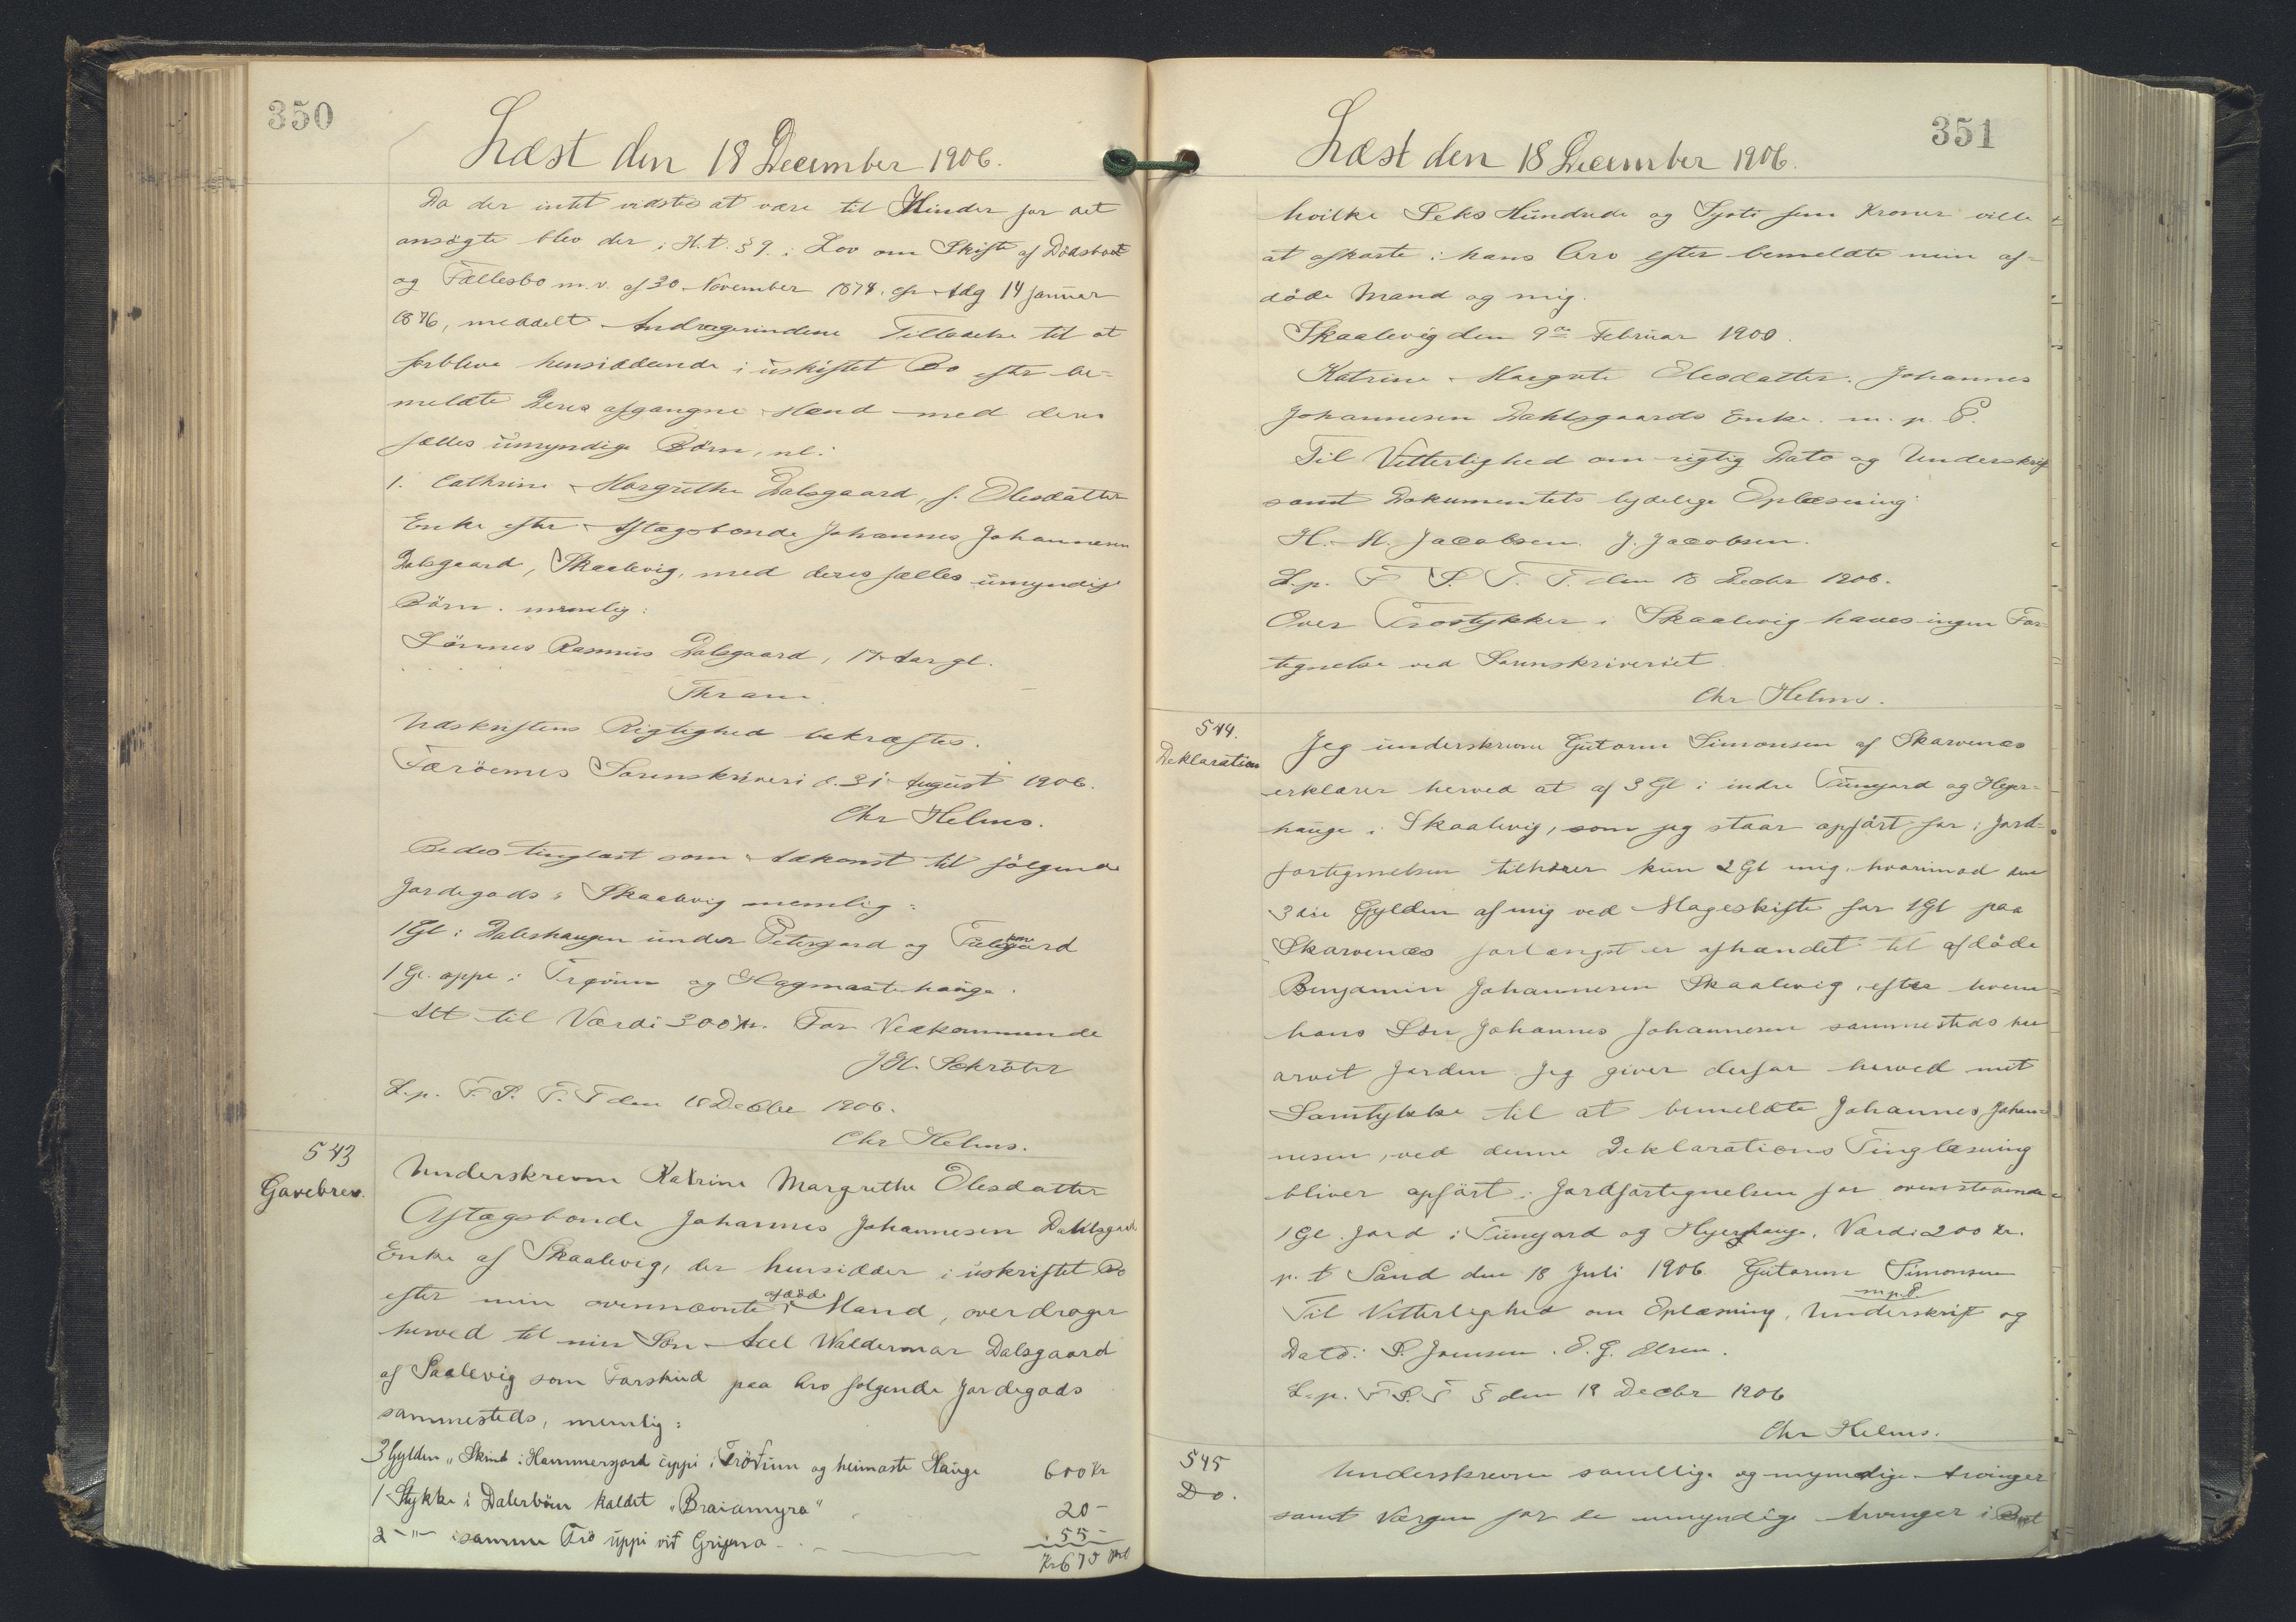 350
Læst den 18 December 1906.
Da der intet vidstes at være til Hinder for det
ansøgte blev der i H.t. § 9. i Lov om Skifte af Dödsboet
og Fællesbo m.v. af 30 November 1874. cfr Adg 14 Januar
1876, meddelt Andragerindene Tilladelse til at
forblive hensiddende i uskiftet Bo efter be-
meldte Deres afgangne Mand med deres
fælles umyndige Börn, nl:
1. Cathrine Margrethe Dalsgaard, f. Olesdatter
Enke efter Aftægsbonde Johannes Johannesen
Dalsgaard, Skaalevig, med deres fælles umyndige
Börn. nemlig:
Lönnes Rasmus Dalsgaard, 17 Aar gl.
Thram
Udskriftens Rigtighed bekræftes.
Færöernes Sorenskriveri d. 31 August 1906.
Chr Helms.
Bedes tinglæst som Adkomst til fölgende
Jordegods i Skaalevig nemlig:
1 Gl: Daleshaugen under Petersgard og
1 Gl. oppe i Trövum og Hagmastehauge.
Alt til Værdi 300 Kr. For Vedkommende
J.H. Schröter
L.p. F. S. T. T den 18 Decbr 1906.
Chr Helms.
543
Gavebrev.
Underskrevne Katrine Margrethe Olesdatter
Aftægsbonde Johannes Johannesen Dahlsgaards
Enke af Skaalevig, der hensidder i uskriftet Bo
efter min ovennævnte afdöde Mand, overdrager
herved til min Sön Axel Waldemar Dalsgaard
af Saalevig som Forskud paa Arv fölgende Jordegods
sammesteds, nemlig:
3 Gylden „ Skind i Hammersgard uppi i Trövum og heimaste Hauge 600 Kr
1 Stykke i Dalerböen kaldet „Braiamyra“ 20 -
2 -„- i samme Trö uppi við 55 -
Kr 675
351
Læst den 18 December 1906.
hvilke Seks Hundrede og Sjøti fem Kroner ville
at afkorte i hans Arv efter bemeldte min af-
döde Mand og mig.
Skaalevig den 9de Februar 1900.
Katrine Margrete Olesdatter. Johannes
Johannesen Dahlsgaards Enke. m. p. P.
Til Vitterlighed om rigtig Dato og Underskrift
samt Dokumentets lydelige Oplæsning:
H. M. Jacobsen. J. Jacobsen.
L.p. F S. T. T. den 18 Decbr 1906.
Over Trostykker i Skaalevig haves ingen For-
tegnelse ved Sorenskriveriet.
Chr Helms.
544.
Deklaration
Jeg underskrevne Gutorm Simonsen af Skarvenæs
erklærer herved at af 3 Gl i indre Tungard og Hejer-
hauge i Skaalevig, som jeg staar opfört for i Jord-
fortegnelsen tilhörer kun 2 Gl mig. hvorimod den
3die Gylden af mig ved Mageskifte for 1 Gl paa
Skarvenæs forlængst er afhændet til afdöde
Benjamin Johannesen Skaalevig, efter hvem
hans Sön Johannes Johannesen sammesteds har
arvet Jorden. Jeg giver derfor herved mit
Samtykke til at bemeldte Johannes Johan-
nesen, ved denne Deklarations Tinglæsning
bliver opfört i Jordfortegnelsen for ovenstaaende
1 Gl. Jord i Tungard og Hejerhauge. Værdi 200 kr.
p. t Sand den 18 Juli 1906. Gutorm Simonsen
m.p.P.
Til Vitterlighed om Oplæsning, Underskrift og
Dato: P. Joensen. E. G. Olsen.
L.p. F S. T T den 18 Decbr 1906
Chr Helms.
545
Do.
Underskrevne samtlige og myndige Arvinger
samt Værgen for de umyndige Arvinger i Boet